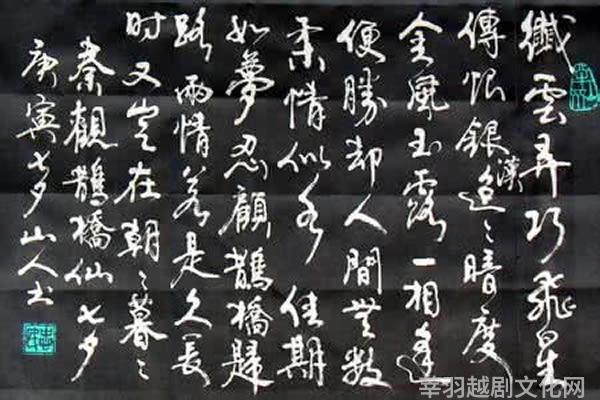 纖雲弄巧飛星
傳恨銀漢迢〻暗度
金風玉露一相逢
便勝却人間無数
柔情似水佳期
如夢忍顧鵲橋歸
路兩情若是久長
时又豈在朝〻暮〻
秦觀鵲橋仙七夕
庚寅七夕山人书
宰羽越剧文化网